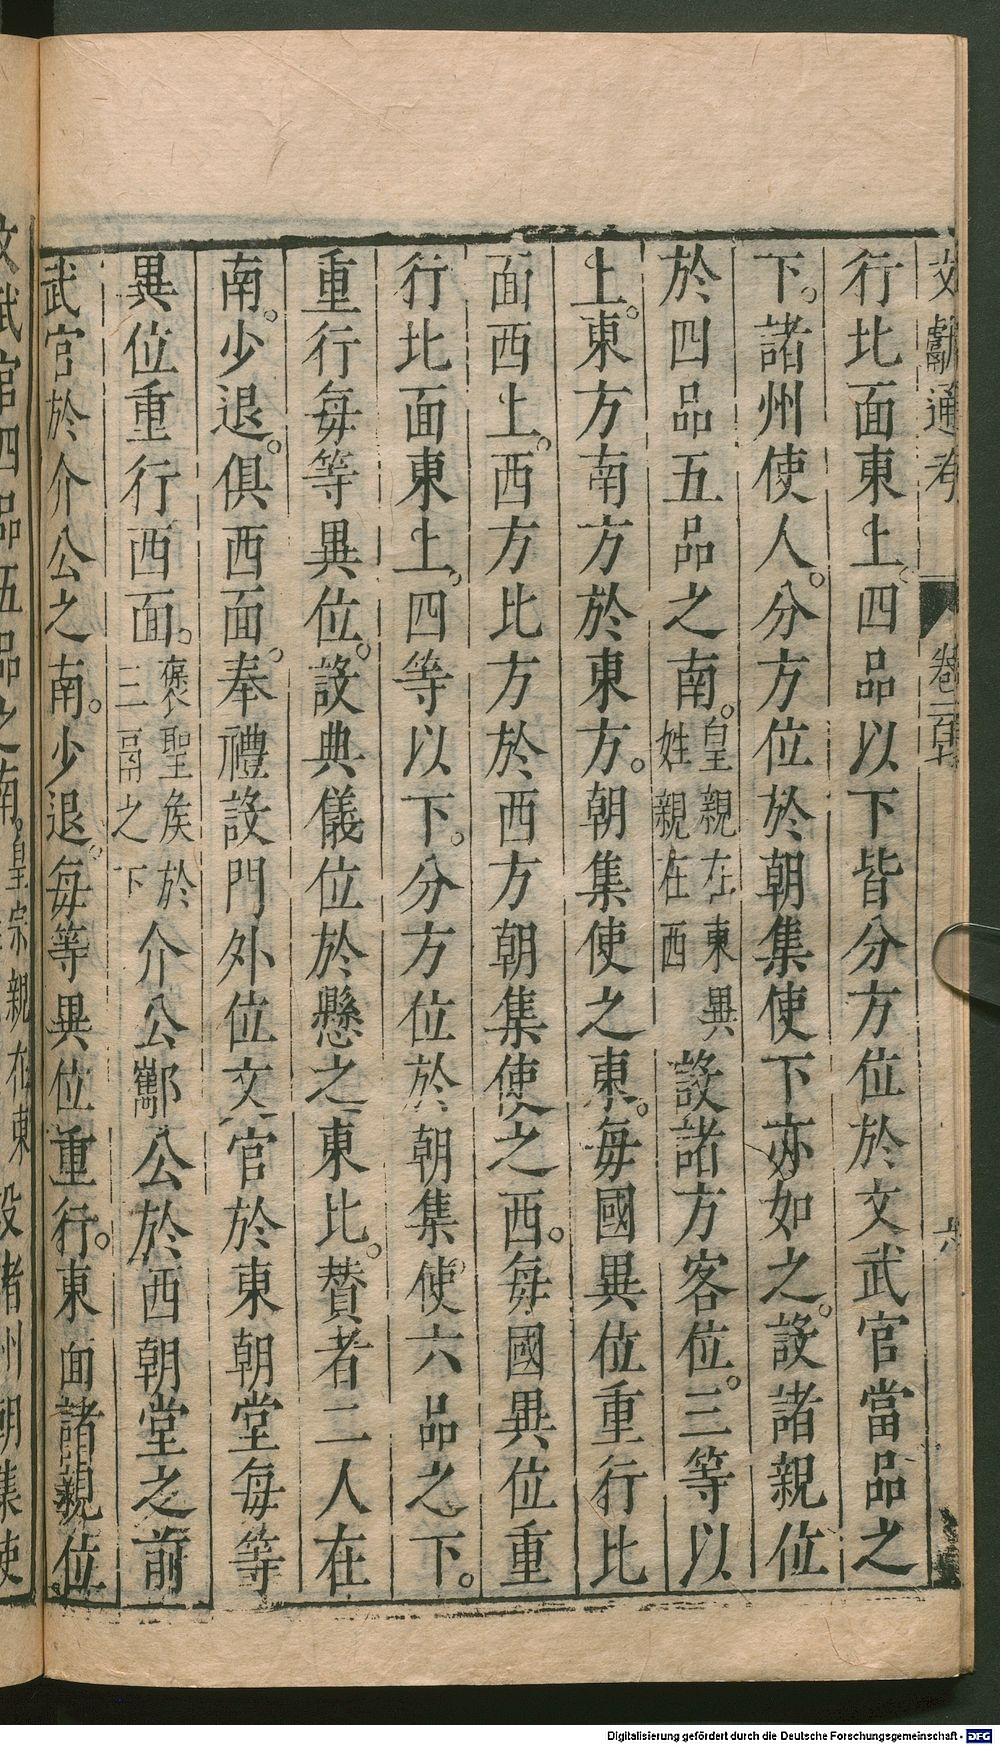 文獻通考 卷一百 六
行北面東上四品以下皆分方位於文武官當品之
下諸州使人分方位於朝集使下亦如之設諸親位
於四品五品之南皇親在東異姓親在西設諸方客位三等以
上東方南方於東方朝集使之東每國異位重行北
面西上西方北方於西方朝集使之西每國異位重
行北面東上四等以下分方位於朝集使六品之下
重行每等異位設典儀位於懸之東北贊者二人在
南少退俱西面奉禮設門外位文官於東朝堂每等
異位重行西面褒聖侯於三品之下介公酅公於西朝堂之前
武官於介公之南少退每等異位重行東面諸親位
文武官四品五品之南皇宗親在東設諸州朝集使
Digitalisierung gefördert durch die Deutsche Forschungsgemeinschaft - DFG